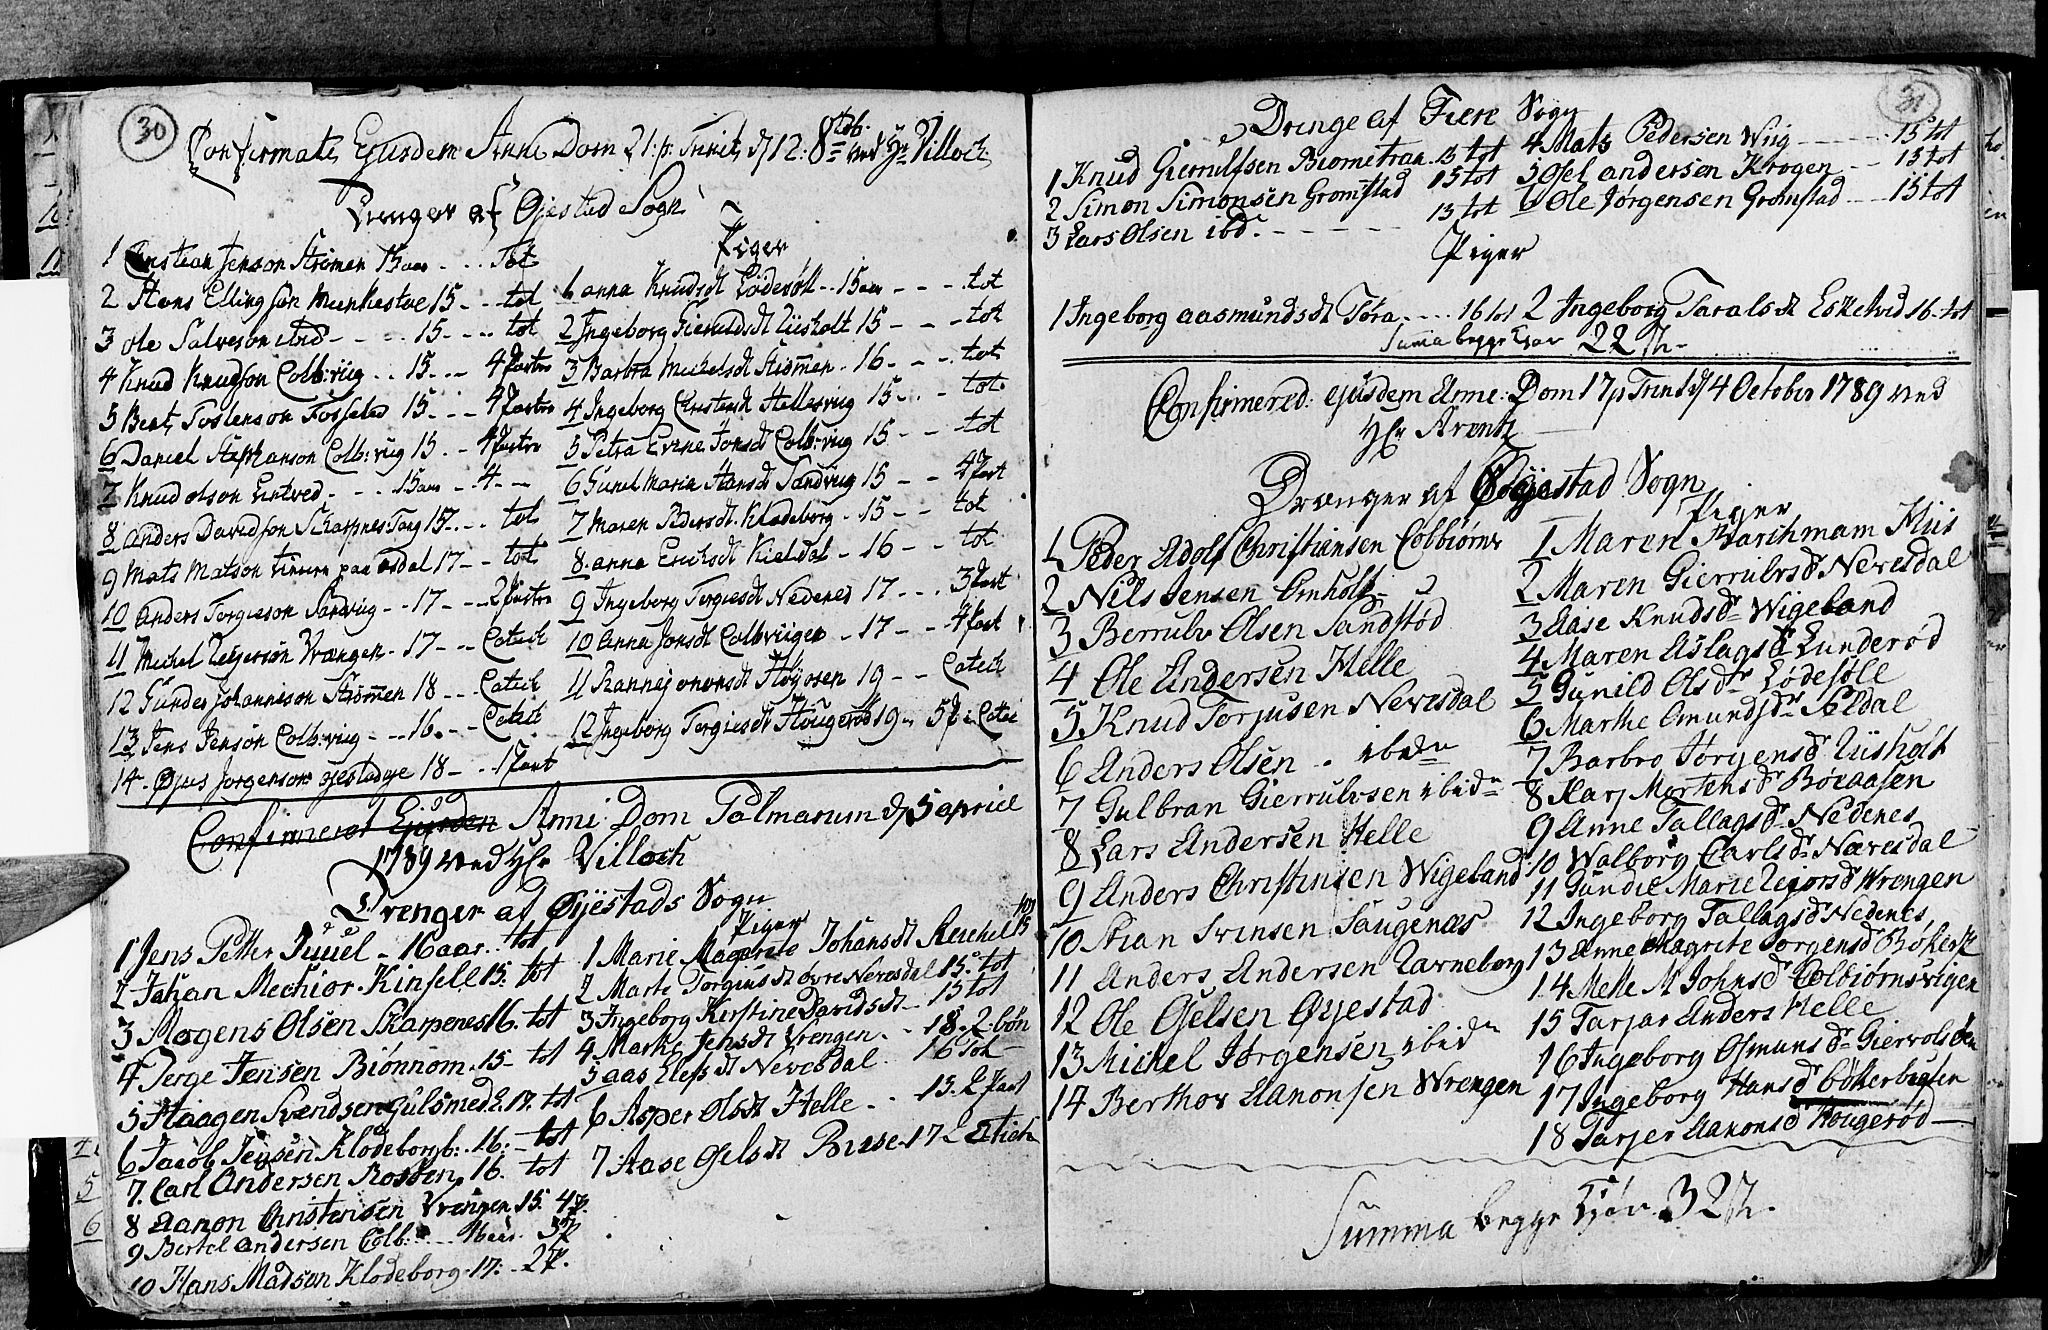 30
Confirmati Ejusdem Anni Dom 21: p: Trinit d 12: 8tob. ved Hr Villoch
Drenger af Øjestad Sogn
1 Christian Jenson Strömen 15 aar - - tot
2 Hans Ellingson Munkestoe 15 - - tot
3 Ole Salveson ibid - - - 15 - - - tot
4 Knud Knudson Colb:viig - - 15 - - 4 Parter
5 Bent Tostenson Fosseløe 15 - - - 4 Parter
6 Daniel Stephanson Colb:viig 15 - - 4 Parter
7 Knud Olson - - - 15 aar - 4 - -
8 Anders Davidson Skarpnes 15 - - - tot
9 Mats Matson paa Asdal 17 - - tot
10 Anders Torgieson Sandvig - - 17 - - - 2 Partre
11 Michel Vrængen - 17 - - Catech
12 Gunder Johannison Strömmen 18 - - Catech
13 Jens Jenson Colb:viig - - 16 - - Catech
14 Jorgenson Øjestadøye 18 - - 1 Part
Piger
1 Anna Knudsdt Lødesøll - - 15 aar - - - tot
2 Ingeborg Gieruldsdt Liisholt 15 - - - tot
3 Barbra Michelsdt Strömmen - 16 - - tot
4 Ingeborg Christensdt Hellesviig 15 - - - tot
5 Petra Evine Jonsdt Colb:viig 15 - - - tot
6 Gunel Maria Hansdt Sandviig 15 - - 4 Part
7 Maren Pedersdt Klodeborg - 15 - - tot
8 Anna Erichsdt Kieldal - 16 - - tot
9 Ingeborg Torgiesdt Nedenes 17 - - - 3 Part
10 Anna Jonsdt Colbviigen - 17 - - 4 Part
11 Høyosen 19 - - Catech
12 Ingeborg Torgiesdt Hougerød 19 - 5 P: Catec
Confirmerat Ejusdem Anni Dom Palmarum d 5 april
1789 ved Hr Villoch
Drenger af Øjestads Sogn
1 Jens Petter Juuel - 16 aar - - tot
2 Johan Mechior Kinsell 15: tot
3 Mogens Olsen Skarpenes 16. tot
4 Terge Jensen Biønnom - 15 - tot
5 Haagen Svendsen Gulsmed. 17. tot
6 Jacob Jensen Klodeborg: 16: - tot
7. Carl Andersen Rosten 16. - tot
8 Aanon Christensen Vrengen 15. 4 P.
9 Bertel Andersen Colb: - - - 16 aar. 3 P
10 Hans Madsen Klodeborg. 17: - 2 P.
Piger
1 Marie Magrete Johansdt Reichel 15 tot
2 Marte Torgiusdt øvre Nevesdal 15: tot
3 Ingeborg Kirstine Davidsdt - - 15 tot
4 Marte Jensdt Vrengen - - 18 - 2 bøn
5 Aas Elefsdt Nevesdal - - 16 Tot
6 Asper Olsdt Helle - - - 15. 2 Part
7 Aase Gelsdt Buse - 17 - Catich
31
Drenge af Fiere Sogn
1 Knud Gierrulfsen Biometraa 15 tot
2 Simon Simonsen Gromstad 15 tot
3 Lars Olsen ibd. - - - - - - 15 tot
4 Mats Pedersen Wiig - - - - 15 tot
5 Gel Andersen Krogen - - - 15 tot
6 Ole Jørgensen Gromstad - - - 15 tot
Piger
1 Ingeborg Aasmundsdt Tøra - - - - 16 tot 2 Ingeborg Taralsdt Esketvid 16 - tot
Suma begge Kjøn 22 P. -
Confirmered: ejusdem Anne: Dom 17 p Trinit d 4 October 1789 ved
Hr Arentz
Drænger af Øyestad Sogn
1 Peder Adolf Christiansen Colbiørns
2 Nils Jensen Omholt
3 Berrulv Olsen Sandstød
4 Ole Andersen Helle
5 Knud Torjusen Nevesdal
6 Anders Olsen - ibidn
7 Gulbran Gierrulvsen ibidn
8 Lars Andersen Helle
9 Anders Christensen Wigeland
10 Stian Svensen Saugenæs
11 Anders Andersen Tarneborg
12 Ole Gelsen Øyestad
13 Michel Jørgensen ibid
14 Berthor Aanonsen Wrengen
Piger
1 Maren Barchmann Hiis
2 Maren Gierrulvsdr Nevesdal
3 Aase Knudsdr Wigeland
4 Maren Aslagsdr Lunderød
5 Gunild Olsdr Lødesøle
6 Marthe Omundsdr Seldal
7 Barbro Jørgensdr Liisholt
8 Karj Mortensdr Boraasen
9 Anne Tallagsdr Nedenes
10 Walborg Carlsdr Nævesdal
11 Gundil Marie Wrengen
12 Ingeborg Tallagsdr Nedenes
13 Anne Magrete Jorgensdr
14 Melle M Johnsdr Colbiørnsvigen
15 Tarjar Anders Helle
16 Ingeborg Osmunsdr
17 Ingeborg Hansdr
18 Tarjer Aanonsdr Hougerød
Summa begge Kjøn 32 P.